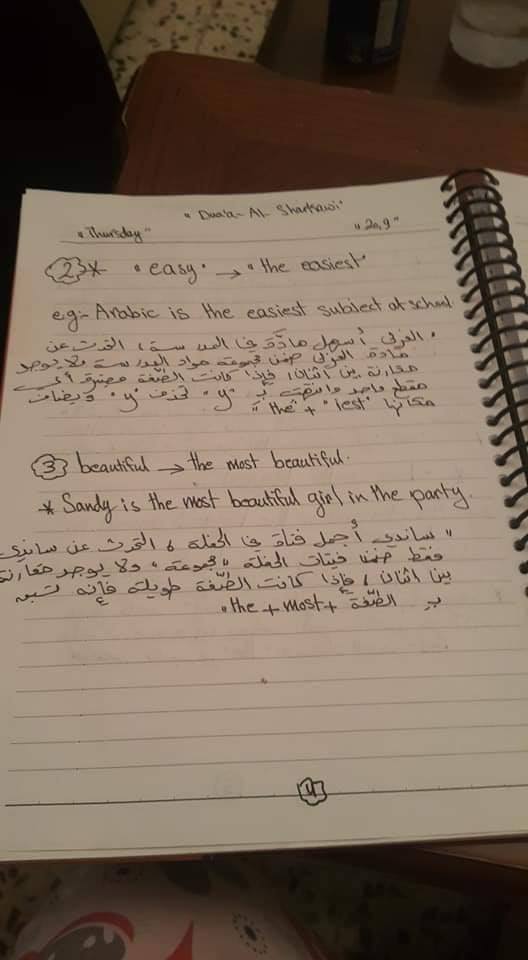 "Duaa- Al- Sharkawi"
"Thursday" "20,9"
2 * "easy" → "the easiest"
e.g:- Arabic is the easiest subject at school.
"العربي أسهل مادة في المدرسة، التحدث عن
مادة العربي ضمن مجموعة مواد المدرسة ولا يوجد
مقارنة بين اثنان، فإذا كانت الصّفة
مقطع واحد وانتهت بـ "y" تحذف "y" ويضاف
مكانها "iest" + the"
3 beautiful → the most beautiful.
* Sandy is the most beautiful girl in the party.
"ساندي أجمل فتاة في الحفلة، التحدث عن ساندي
فقط ضمن فتيات الحفلة "مجموعة" ولا يوجد مقارنة
بين اثنان، فإذا كانت الصّفة طويلة فإنه تسبق
بـ the + most + الصّفة"
4